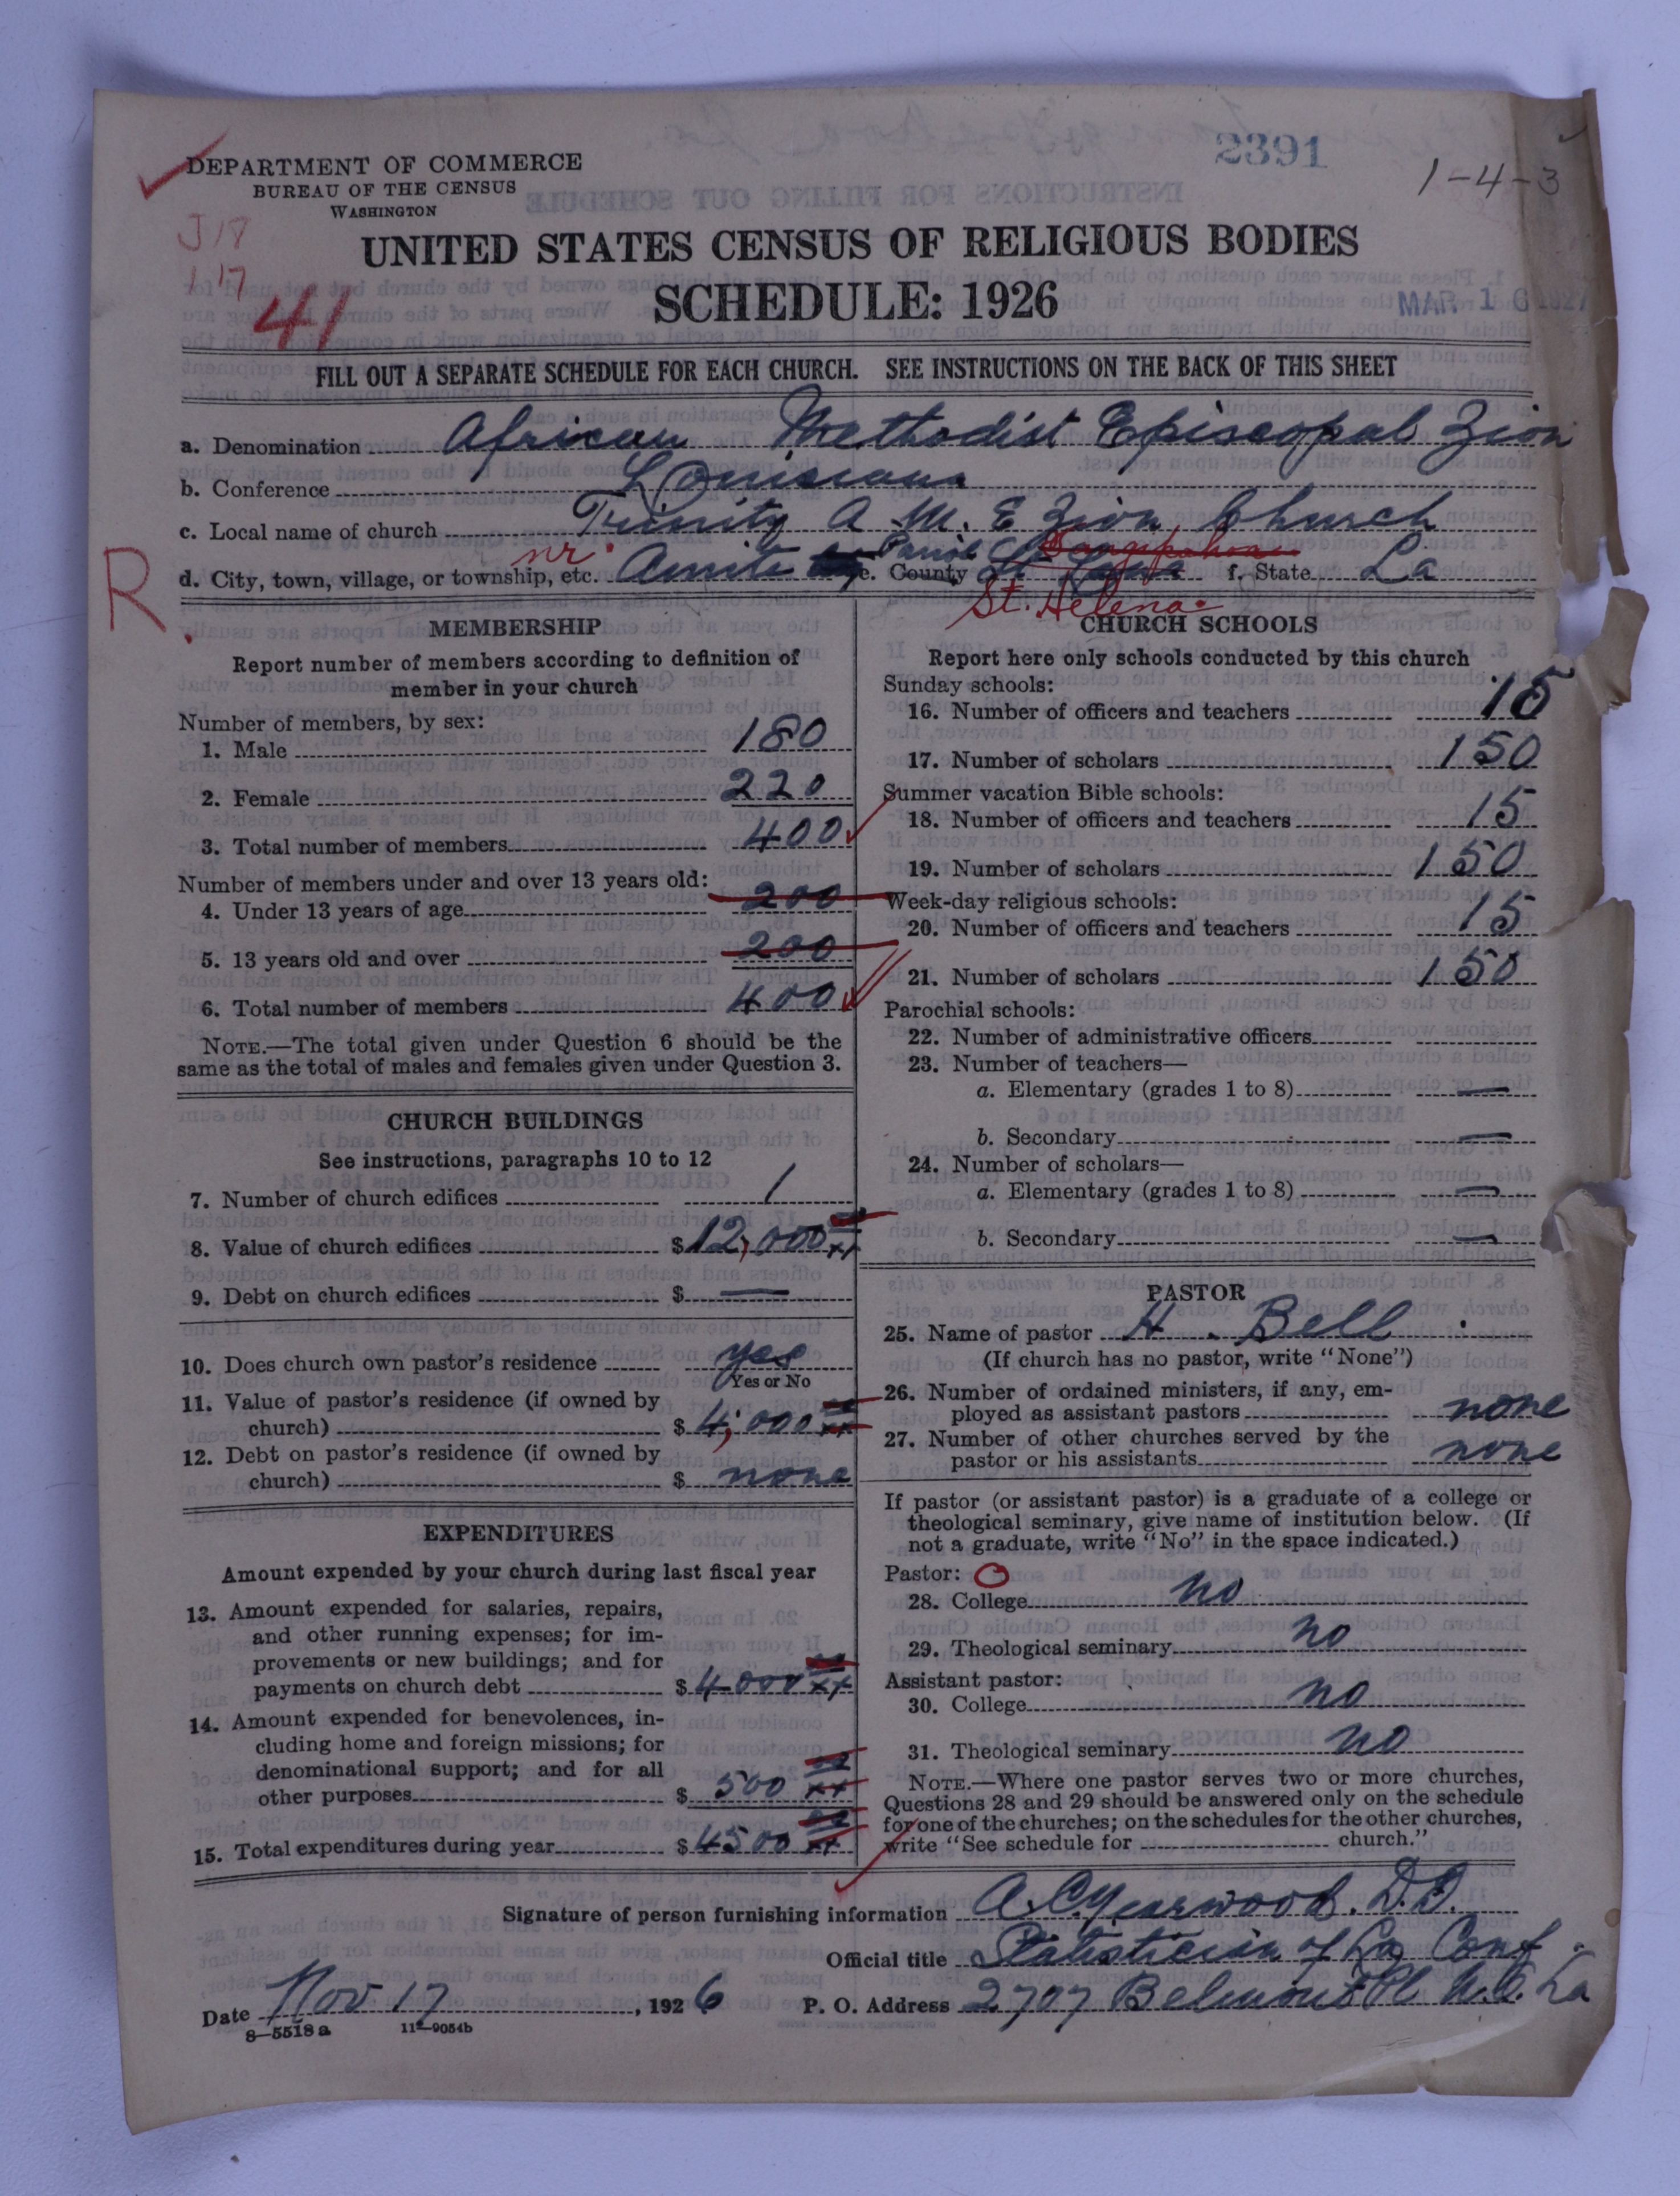 2391
1-4-3
DEPARTMENT OF COMMERCE
BUREAU OF THE CENSUS
WASHINGTON
J 18
1 17
41
UNITED STATES CENSUS OF RELIGIOUS BODIES
SCHEDULE: 1926
MAR 16 1927
FILL OUT A SEPARATE SCHEDULE FOR EACH CHURCH. SEE INSTRUCTIONS ON THE BACK OF THIS SHEET
a. Denomination African Methodist Episcopal Zion
b. Conference Louisiana
c. Local name of church Trinity A M. E Zion Church
R. d. City, town, village, or township, etc. nr. Amite e. County Parish Tangipahoa St. Helena f. State La
MEMBERSHIP
Report number of members according to definition of
member in your church
Number of members, by sex:
1. Male 180
2. Female 220
3. Total number of members 400
Number of members under and over 13 years old:
4. Under 13 years of age 200
5. 13 years old and over 200
6. Total number of members 400
NOTE.—The total given under Question 6 should be the
same as the total of males and females given under Question 3.
CHURCH BUILDINGS
See instructions, paragraphs 10 to 12
7. Number of church edifices 1
8. Value of church edifices $ 12,000 xx
9. Debt on church edifices $ —
10. Does church own pastor's residence yes
Yes or No
11. Value of pastor's residence (if owned by
church) $ 4,000 xx
12. Debt on pastor's residence (if owned by
church) $ none
EXPENDITURES
Amount expended by your church during last fiscal year
13. Amount expended for salaries, repairs,
and other running expenses; for im-
provements or new buildings; and for
payments on church debt $ 4000 xx
14. Amount expended for benevolences, in-
cluding home and foreign missions; for
denominational support; and for all
other purposes $ 500 xx
15. Total expenditures during year $ 4500 xx
CHURCH SCHOOLS
Report here only schools conducted by this church
Sunday schools:
16. Number of officers and teachers 15
17. Number of scholars 150
Summer vacation Bible schools:
18. Number of officers and teachers 15
19. Number of scholars 150
Week-day religious schools:
20. Number of officers and teachers 15
21. Number of scholars 150
Parochial schools:
22. Number of administrative officers
23. Number of teachers—
a. Elementary (grades 1 to 8) —
b. Secondary —
24. Number of scholars—
a. Elementary (grades 1 to 8) —
b. Secondary —
PASTOR
25. Name of pastor H. Bell
(If church has no pastor, write "None")
26. Number of ordained ministers, if any, em-
ployed as assistant pastors none
27. Number of other churches served by the
pastor or his assistants none
If pastor (or assistant pastor) is a graduate of a college or
theological seminary, give name of institution below. (If
not a graduate, write "No" in the space indicated.)
Pastor: O
28. College no
29. Theological seminary no
Assistant pastor:
30. College no
31. Theological seminary no
NOTE.—Where one pastor serves two or more churches,
Questions 28 and 29 should be answered only on the schedule
for one of the churches; on the schedules for the other churches,
write "See schedule for church."
Signature of person furnishing information A. C. Yearwood. D.D.
Official title Statistician of La Conf.
Date Nov 17, 1926 P. O. Address 2707 Belmont Pl N.O. La
8—5518 a 11—9054b